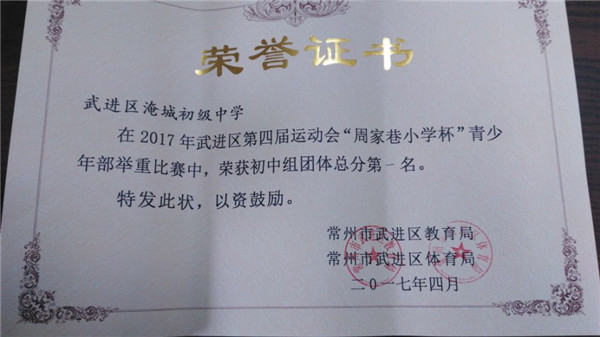 荣誉证书
武进区淹城初级中学
在2017年武进区第四届运动会“周家巷小学杯”青少
年部举重比赛中，荣获初中组团体总分第一名。
特发此状，以资鼓励。
常州市武进区教育局
常州市武进区体育局
二〇一七年四月